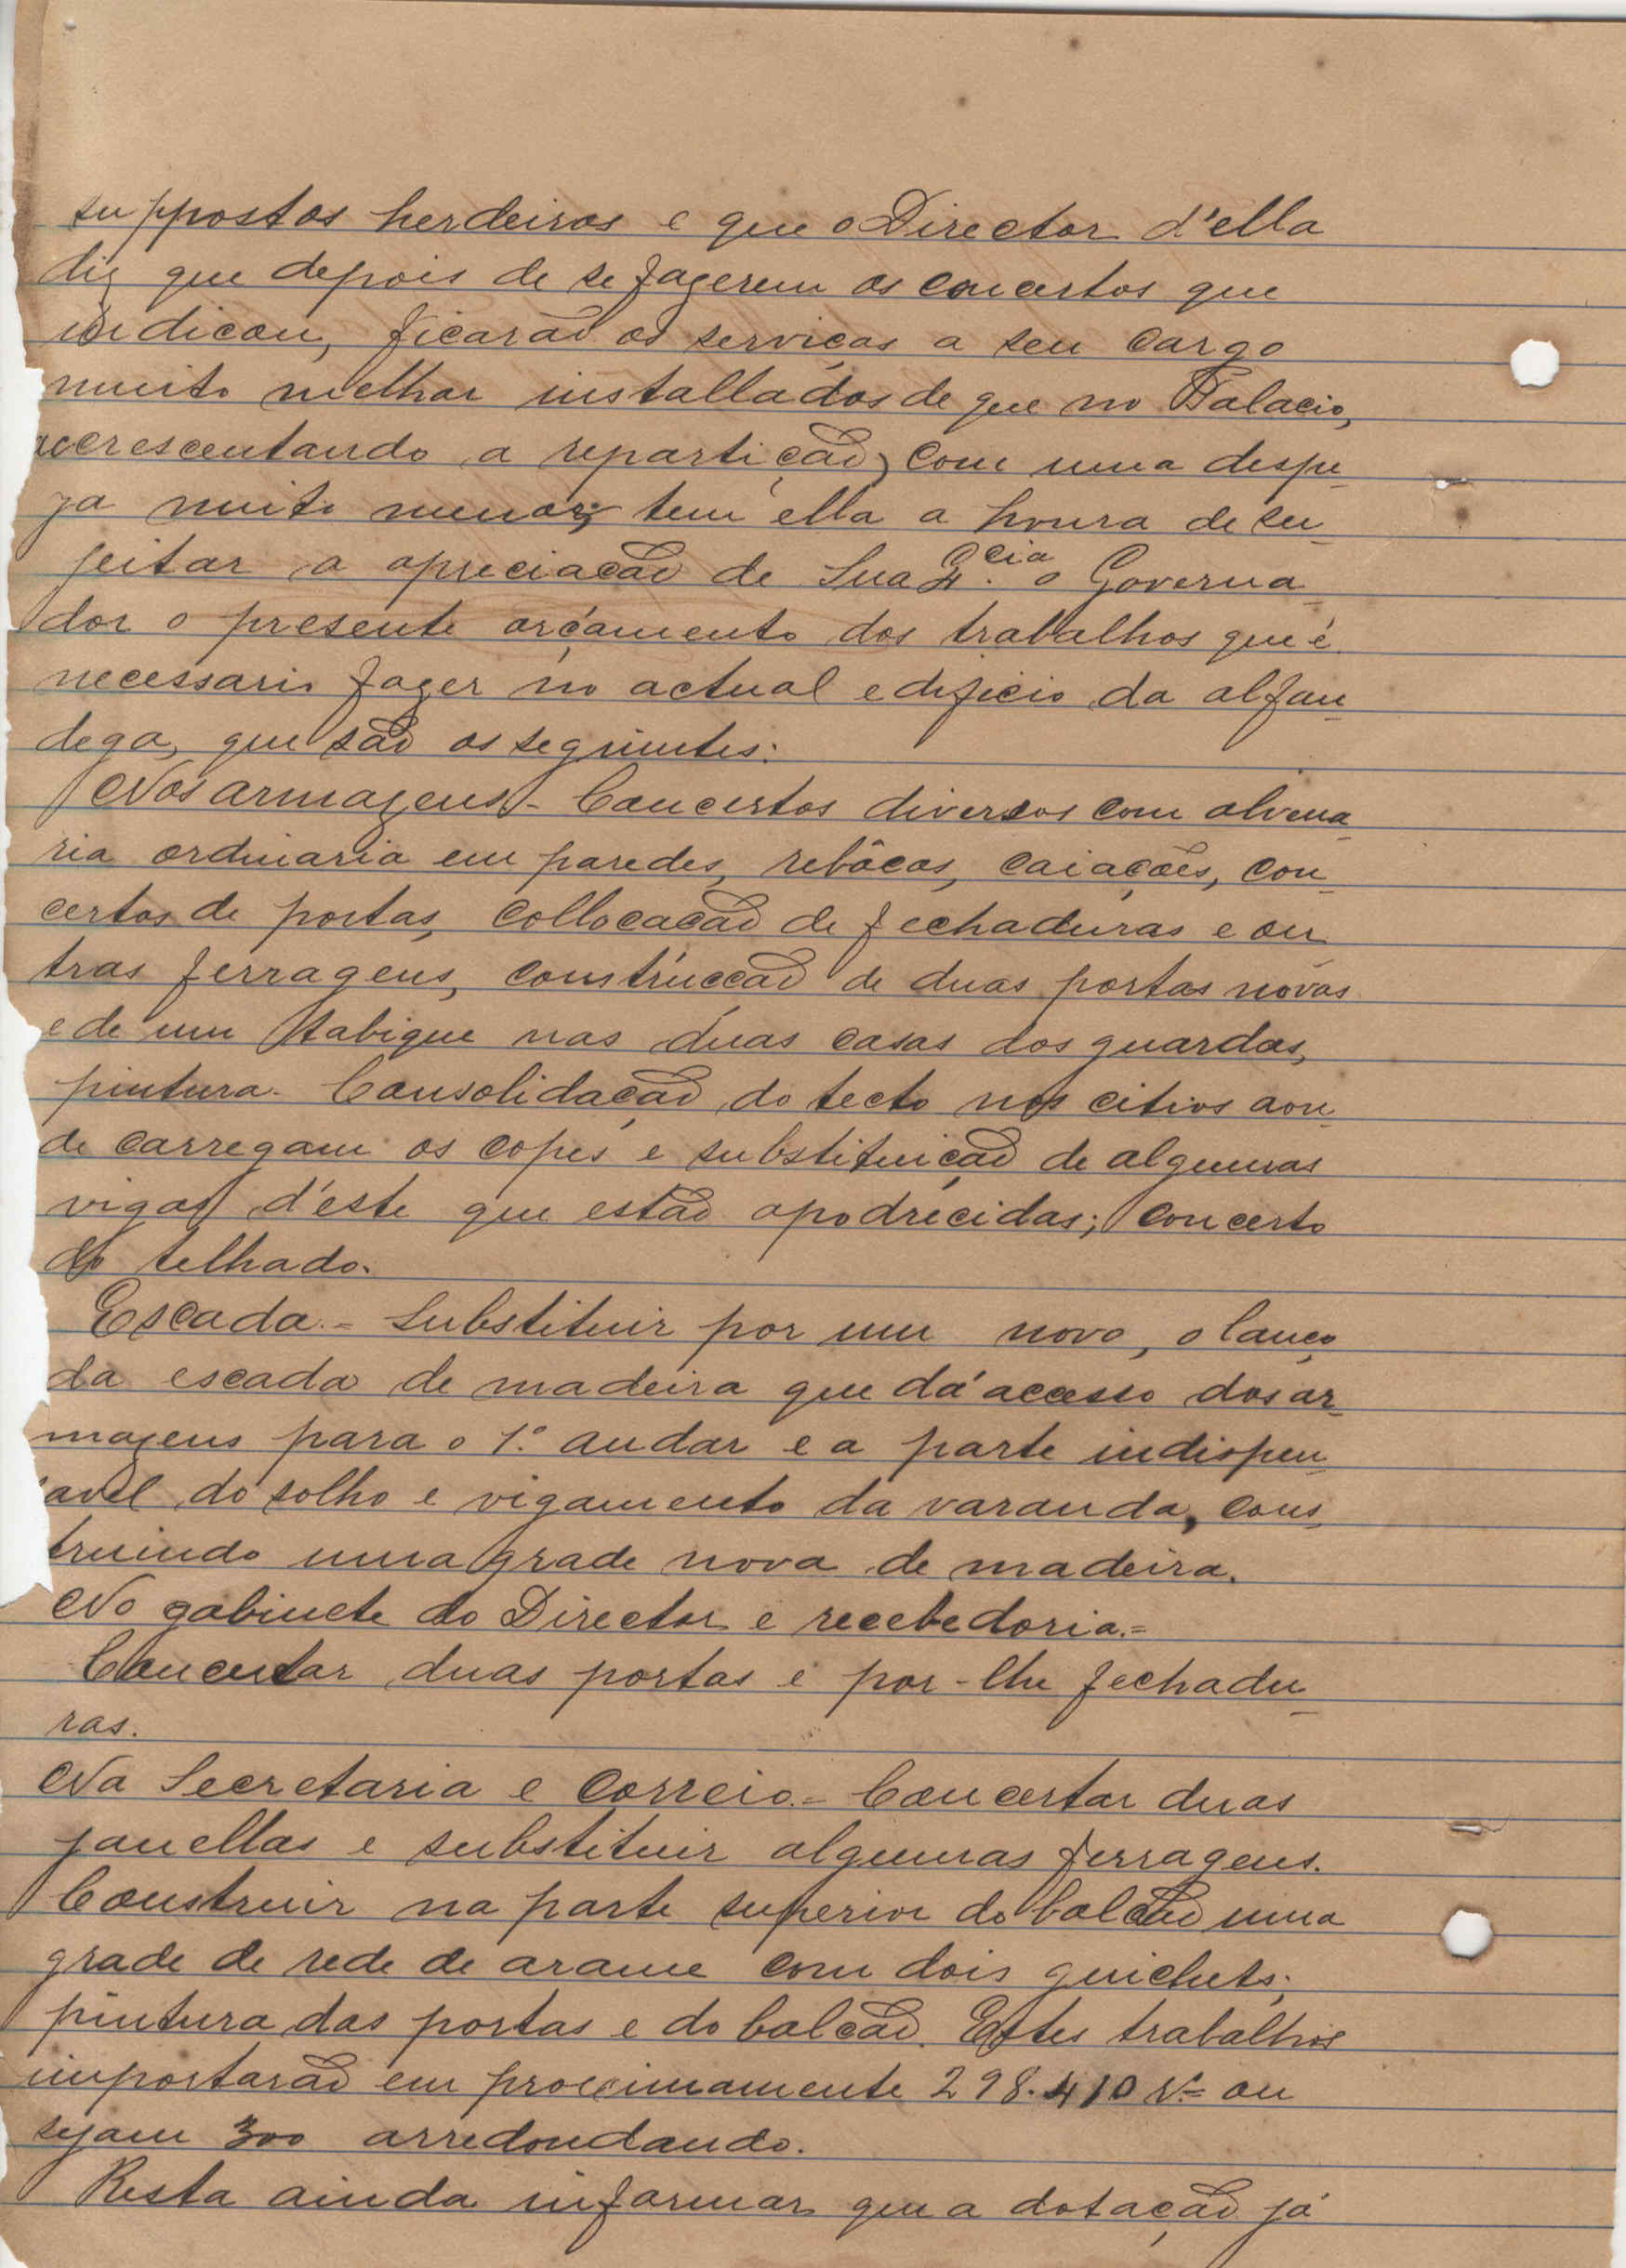 suppostos herdeiros e que o Director d'ella
diz que depois de se fazerem os concertos que
indicou, ficarão os serviços a seu cargo
muito melhor installados de que no Palacio,
accrescentando a repartição, com uma despe-
za muito menor; tem ella a honra de su-
jeitar a apreciacão de Sua Ex.cia o Governa-
dor o presente orçamento dos trabalhos que é
necessario fazer no actual edificio da alfan-
dega, que são os seguintes:
Nos armazens - Concertos diversos com alvena-
ria ordinaria em paredes, rebôcos, caiações, con-
certos de portas, collocacão de fechaduras e ou-
tras ferragens, construccão de duas portas novas
e de um tabique nas duas casas dos guardas,
pintura. Consolidação do tecto nos citios aon-
de carregam os copes e substituição de algumas
vigas d'este que estão apodrecidas; concerto
do telhado.
Escada - Substituir por um novo, o lanço
da escada de madeira que dá acesso dos ar-
mazens para o 1.º andar e a parte indispen-
savel do solho e vigamento da varanda, cons-
truindo uma grade nova de madeira.
No gabinete do Director e recebedoria. =
Concertar duas portas e por-lhe fechadu-
ras.
Na Secretaria e Correio. - Concertar duas
janellas e substituir algumas ferragens.
Construir na parte superior do balcão uma
grade de rede de arame com dois guichets;
pintura das portas e do balcão. Estes trabalhos
importarão em proximamente 298.410 rs ou
sejam 300 arredondando.
Resta ainda informar que a dotação já